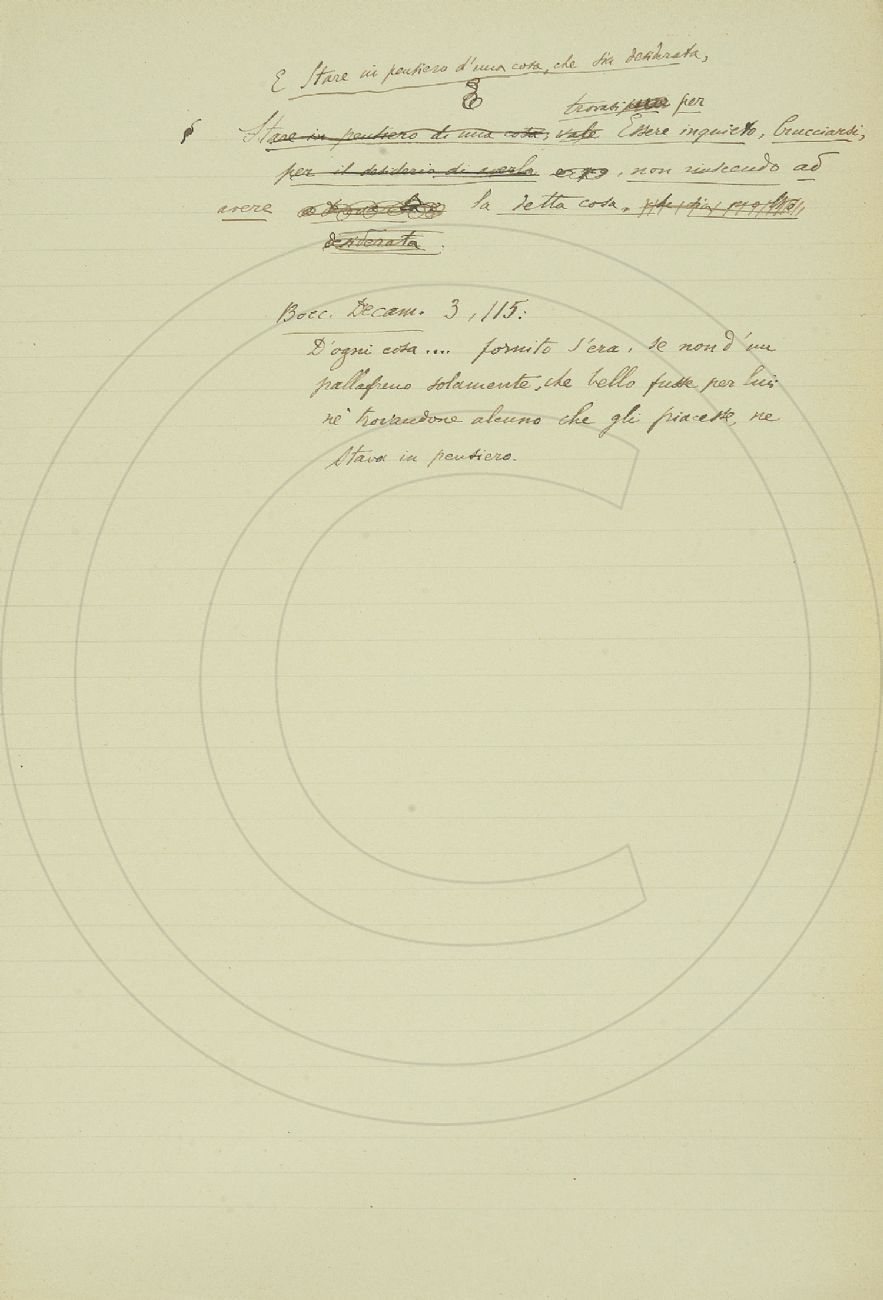 E Stare in pensiero d'una cosa, che sia desiderata,
trovasi per
§ Stare in pensiero di una cosa, vale Essere inquieto, Crucciarsi,
per il desiderio di averla, non riuscendo ad
avere la detta cosa.
desiderata.
Bocc. Decam. 3, 115:
D'ogni cosa.... fornito s'era, se non d'un
pallafreno solamente, che bello fusse per lui;
nè trovandone alcuno che gli piacesse, ne
stava in pensiero.